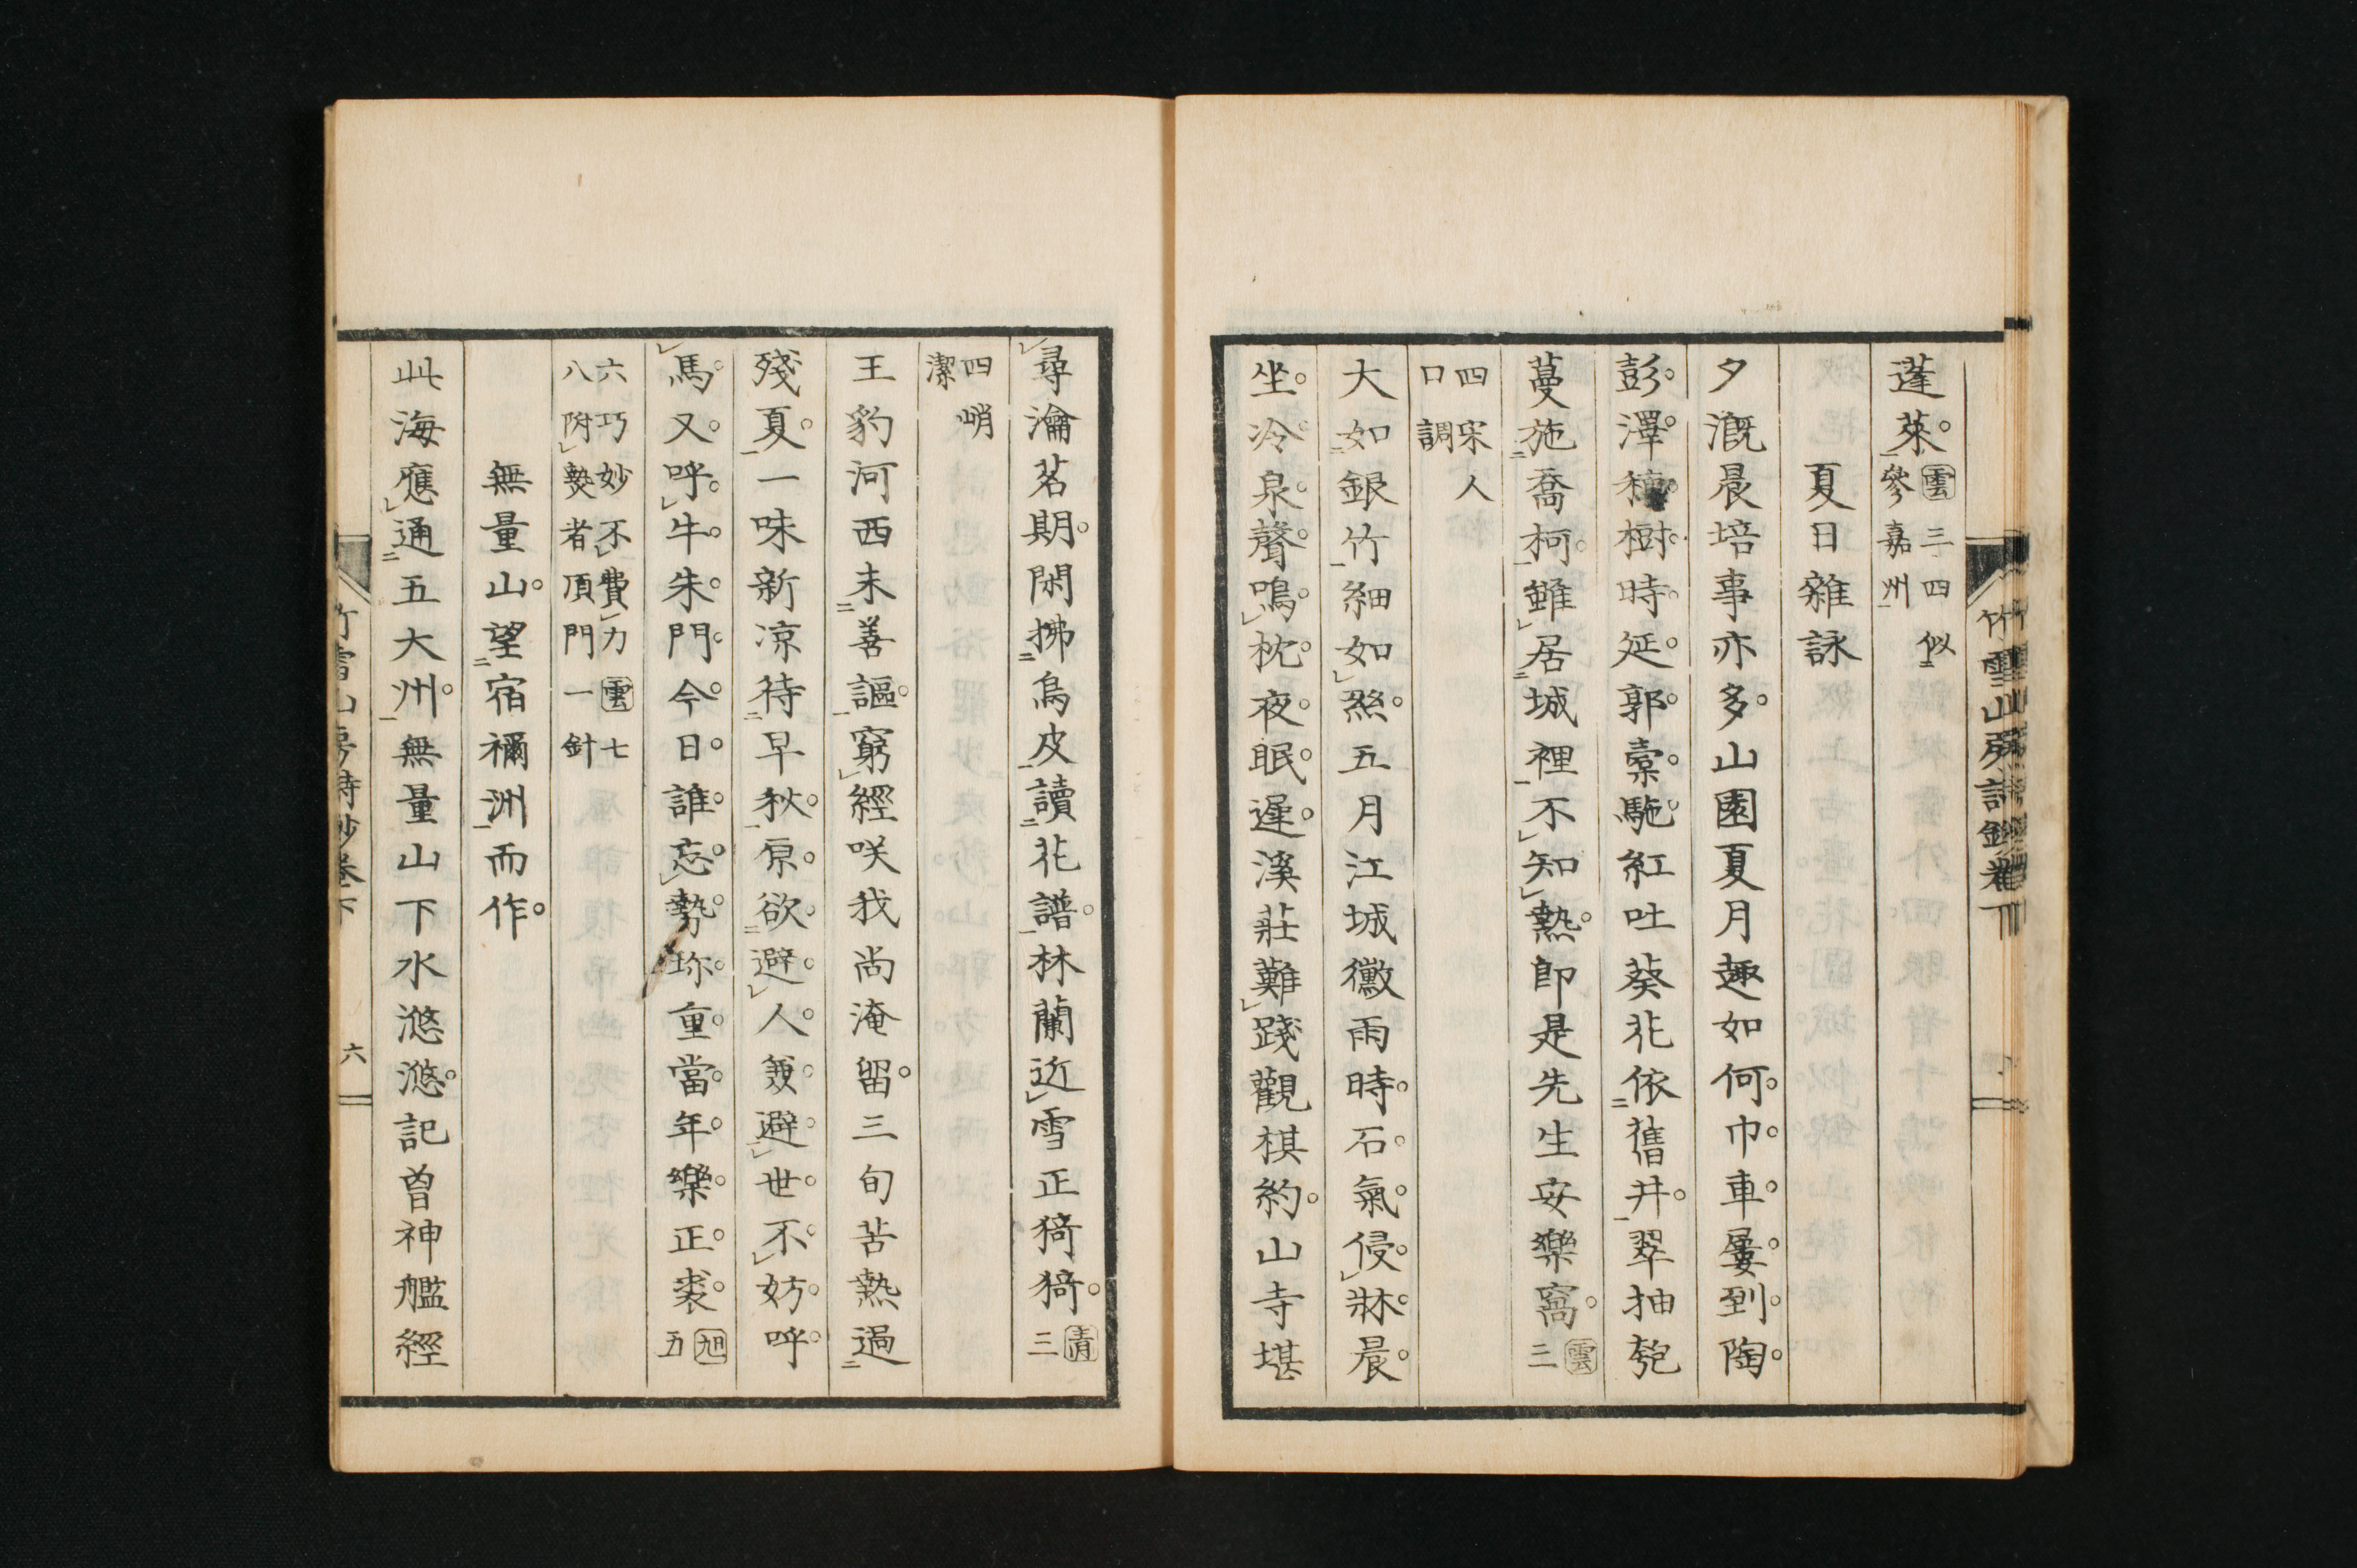 竹雪山房詩鈔卷下
蓬萊。雲三四似
參嘉州
夏日雜詠
夕漑晨培事亦多。山園夏月趣如何。巾車屢到陶
彭澤。種樹時延郭橐駞。紅吐葵花依舊井。翠抽匏
蔓施喬柯。雖居城裡不知熱。即是先生安樂窩。雲三
四宋人
口調
大如銀竹細如絲。五月江城黴雨時。石氣侵牀晨
坐冷。泉聲鳴枕夜眠遲。溪莊難踐觀棋約。山寺堪
尋瀹茗期。閑拂烏皮讀花譜。林蘭近雪正猗猗。青三
四峭
潔
王豹河西未善謳。窮經咲我尚淹留。三旬苦熱過
殘夏。一味新凉待早秋。原欲避人兼避世。不妨呼
馬又呼牛。朱門今日誰忘勢。珍重當年樂正裘。旭五
六巧妙不費力雲七
八附熱者頂門一針
無量山。望宿禰洲而作。
此海應通五大州。無量山下水悠悠。記曾神艦經
竹雪山房詩鈔卷下 六